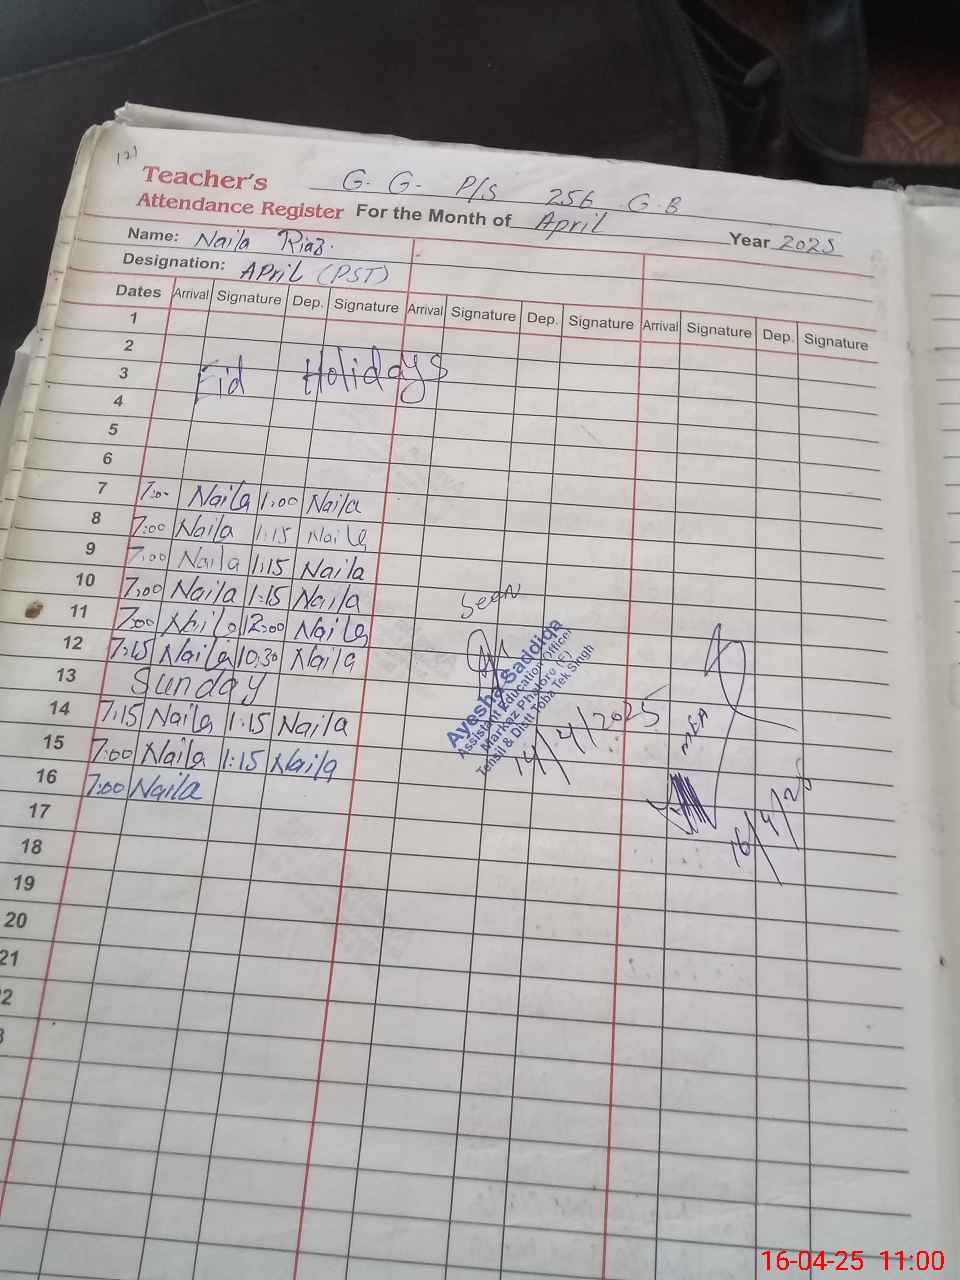 Teacher's G. G. P/S 256 G.B
Attendance Register For the Month of April Year 2025
Name: Naila Riaz.
Designation: APriL (PST)
Dates Arrival Signature Dep. Signature Arrival Signature Dep. Signature Arrival Signature Dep. Signature
1
2
3 Eid Holidays
4
5
6
7 7:00 Naila 1:00 Naila
8 7:00 Naila 1:15 Naila
9 7:00 Naila 1:15 Naila
10 7:00 Naila 1:15 Naila
11 7:00 Naila 12:00 Naila
12 7:15 Naila 10:30 Naila
13 Sunday
14 7:15 Naila 1:15 Naila
15 7:00 Naila 1:15 Naila
16 7:00 Naila
17
18
19
20
21
22
3
Seen
Ayesha Saddiqa
Assistant Education Officer
Markaz Phalore (F)
Tehsil & Distt Toba Tek Singh
14/4/2025
MEA
16/4/25
16-04-25 11:00